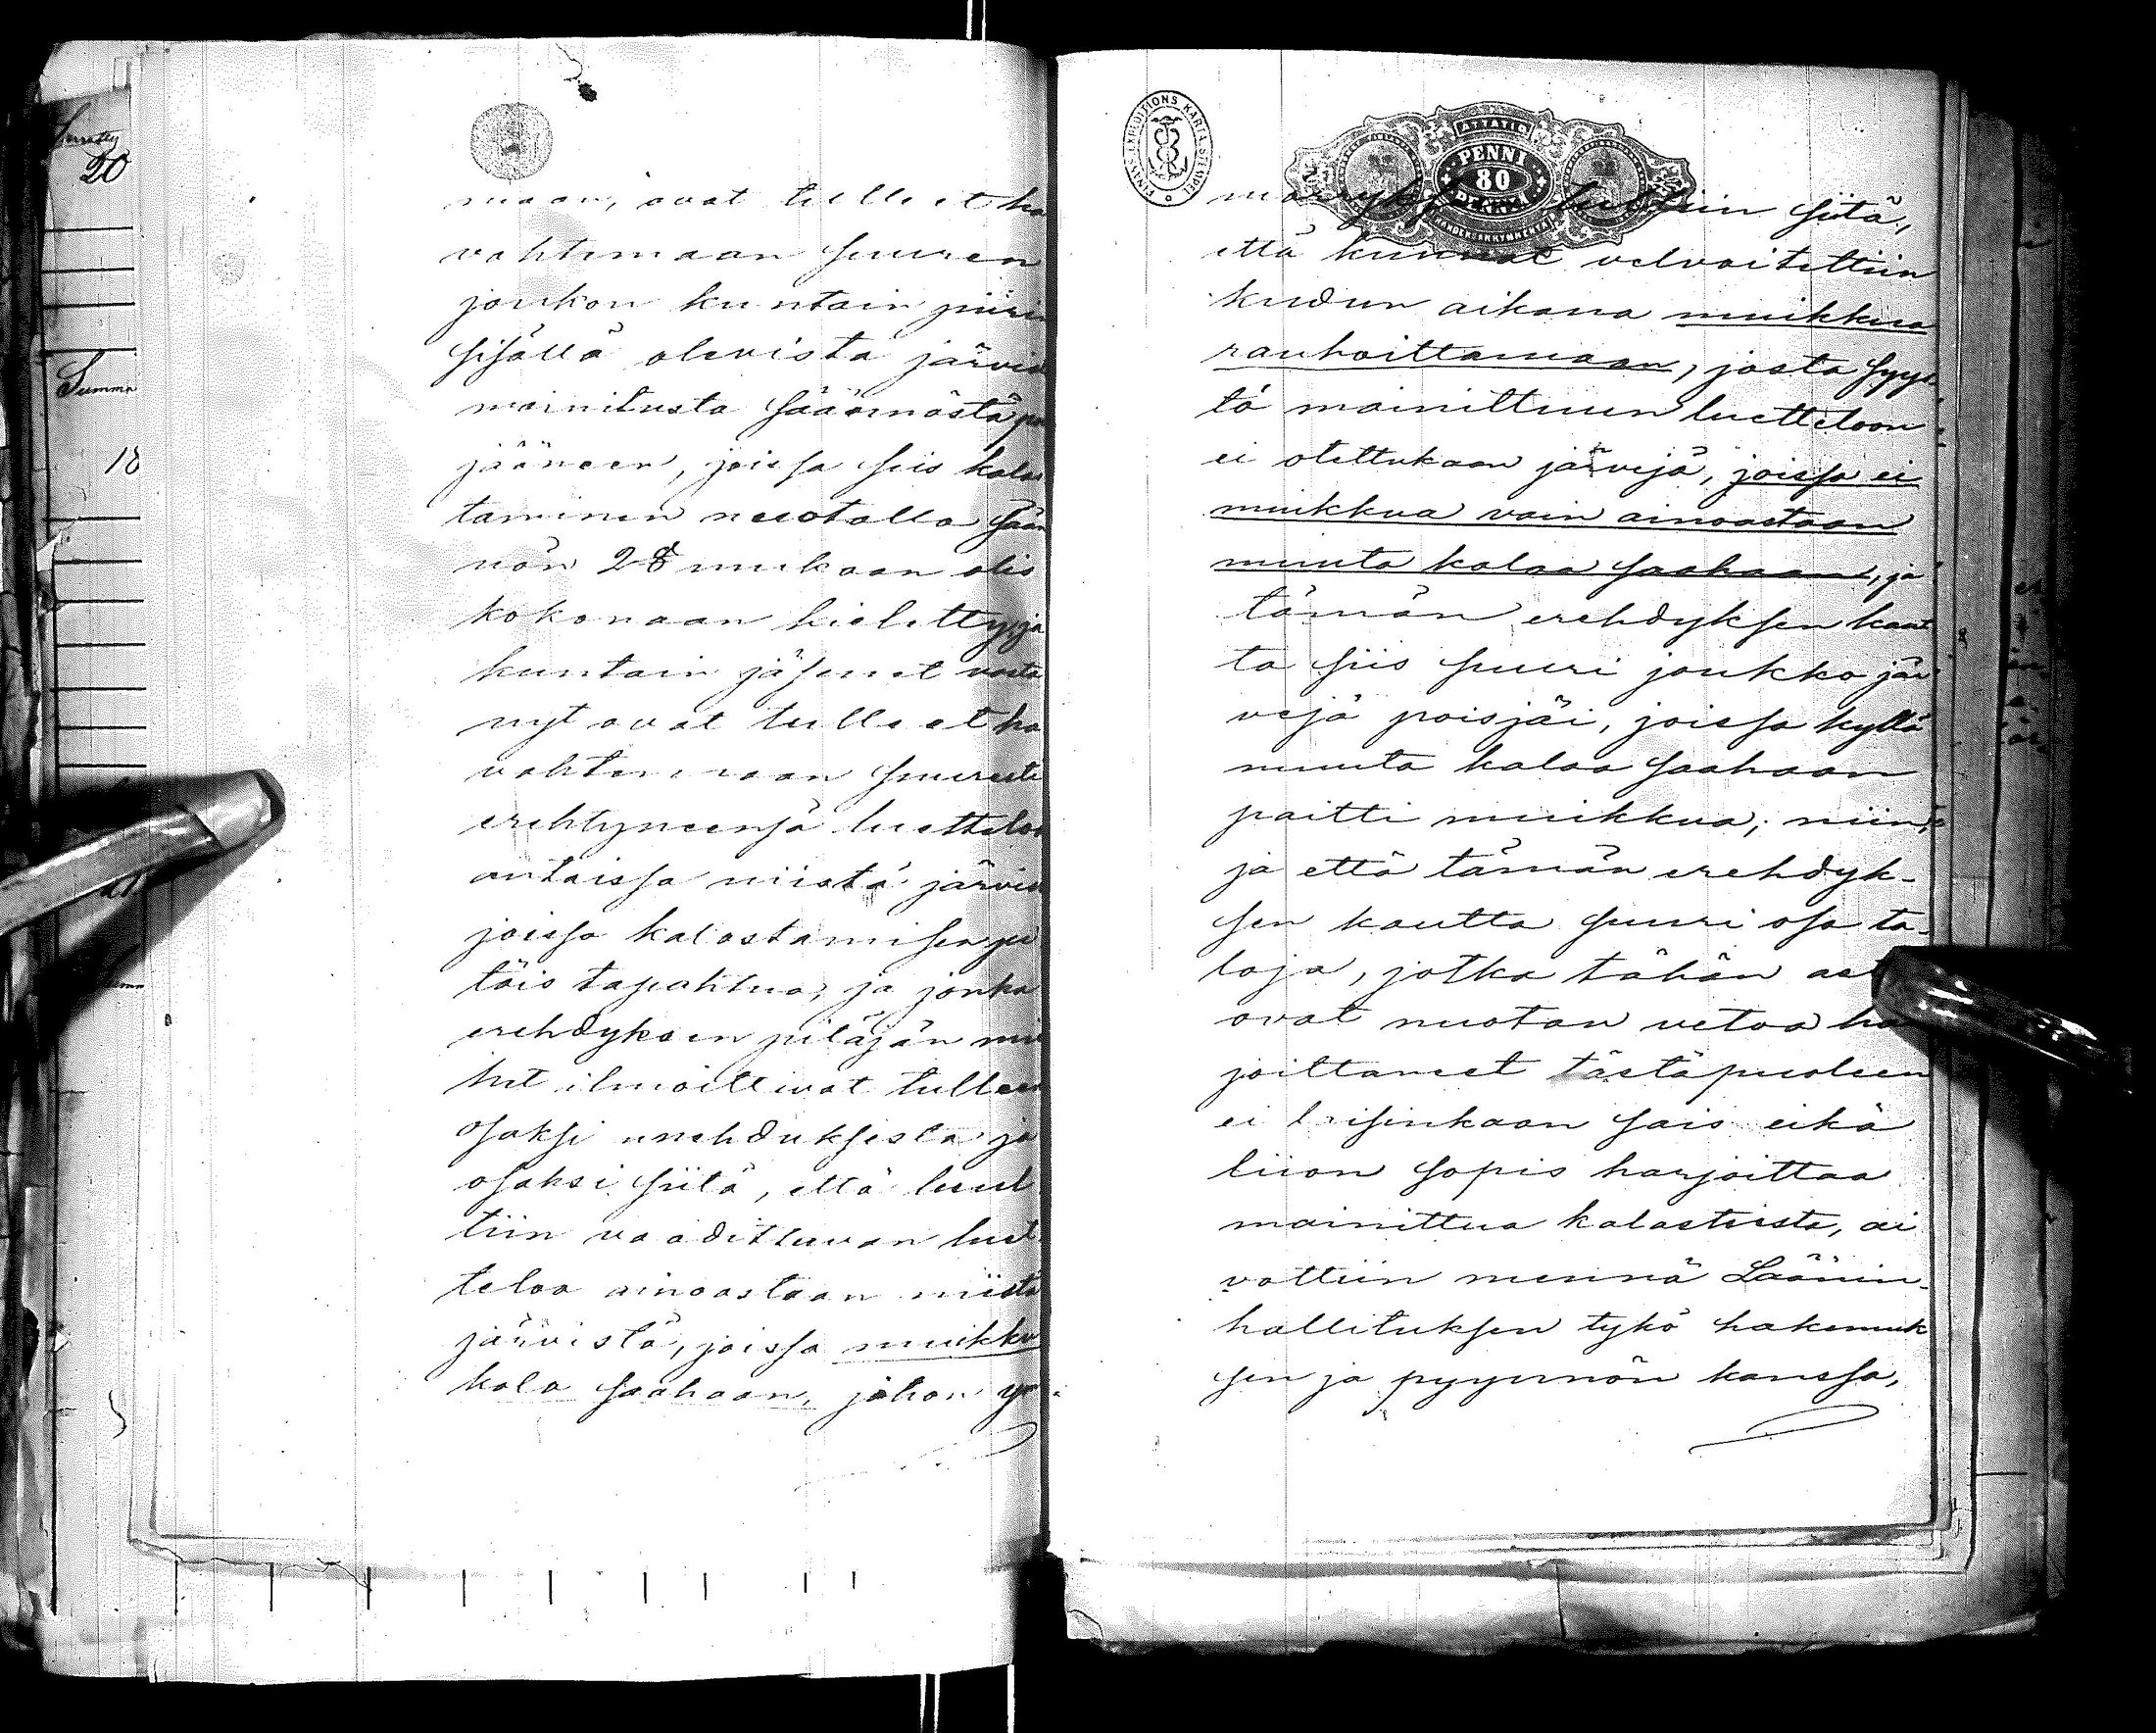 maan, ovat tulleet ha
vahtemaan suuren
joukon kuntain piirin
sisällä olevista järvis
mainitusta säännöstä po
jääneen, joissa siis kalas
taminen nuotalla sään
nön 2 § mukaan olis
kokonaan kielletty, ja
kuntain jäsenet vasta
nyt ovat tulleet ha
vahtemaan suuresti
erehtyneensä luettelon
antaissa niistä järvis
joissa kalastamisen pi
täis tapahtua, ja jonka
erehdyksen pitäjän mie
het ilmoittivat tulleen
osaksi unehduksista ja
osaksi siitä, että luul
tiin vaadittavan luet
teloa ainoastaan niistä
järvistä, joissa muikku
kala saahaan, johon ym
märrykseen tultiin siitä,
että kunnat velvoitettiin
kudun aikana muikkua
rauhoittamaan, josta syys
tä mainittuun luetteloon
ei otettukaan järvejä, joissa ei
muikkua vain ainoastaan
muuta kalaa saahaan, ja
tämän erehdyksen kaut
ta siis suuri joukko jär
vejä poisjäi, joissa kyllä
muuta kalaa saahaan
paitti muikkua; niin
ja että tämän erehdyk-
sen kautta suuri osa ta-
loja, jotka tähän as
ovat nuotan vetoa har
joittaneet tästäpuoleen
ei laisinkaan sais eikä
liion sopis harjoittaa
mainittua kalastusta, ai
vottiin mennä Läänin-
hallituksen tykö hakemuk
sen ja pyynnön kanssa,
FINANS EXPEDITIONS KARTA STÄMPEL
ÅTTATIO
PENNI
80
PENNIÄ
KAHDEKSANKYMMENTÄ
20
Summa
18